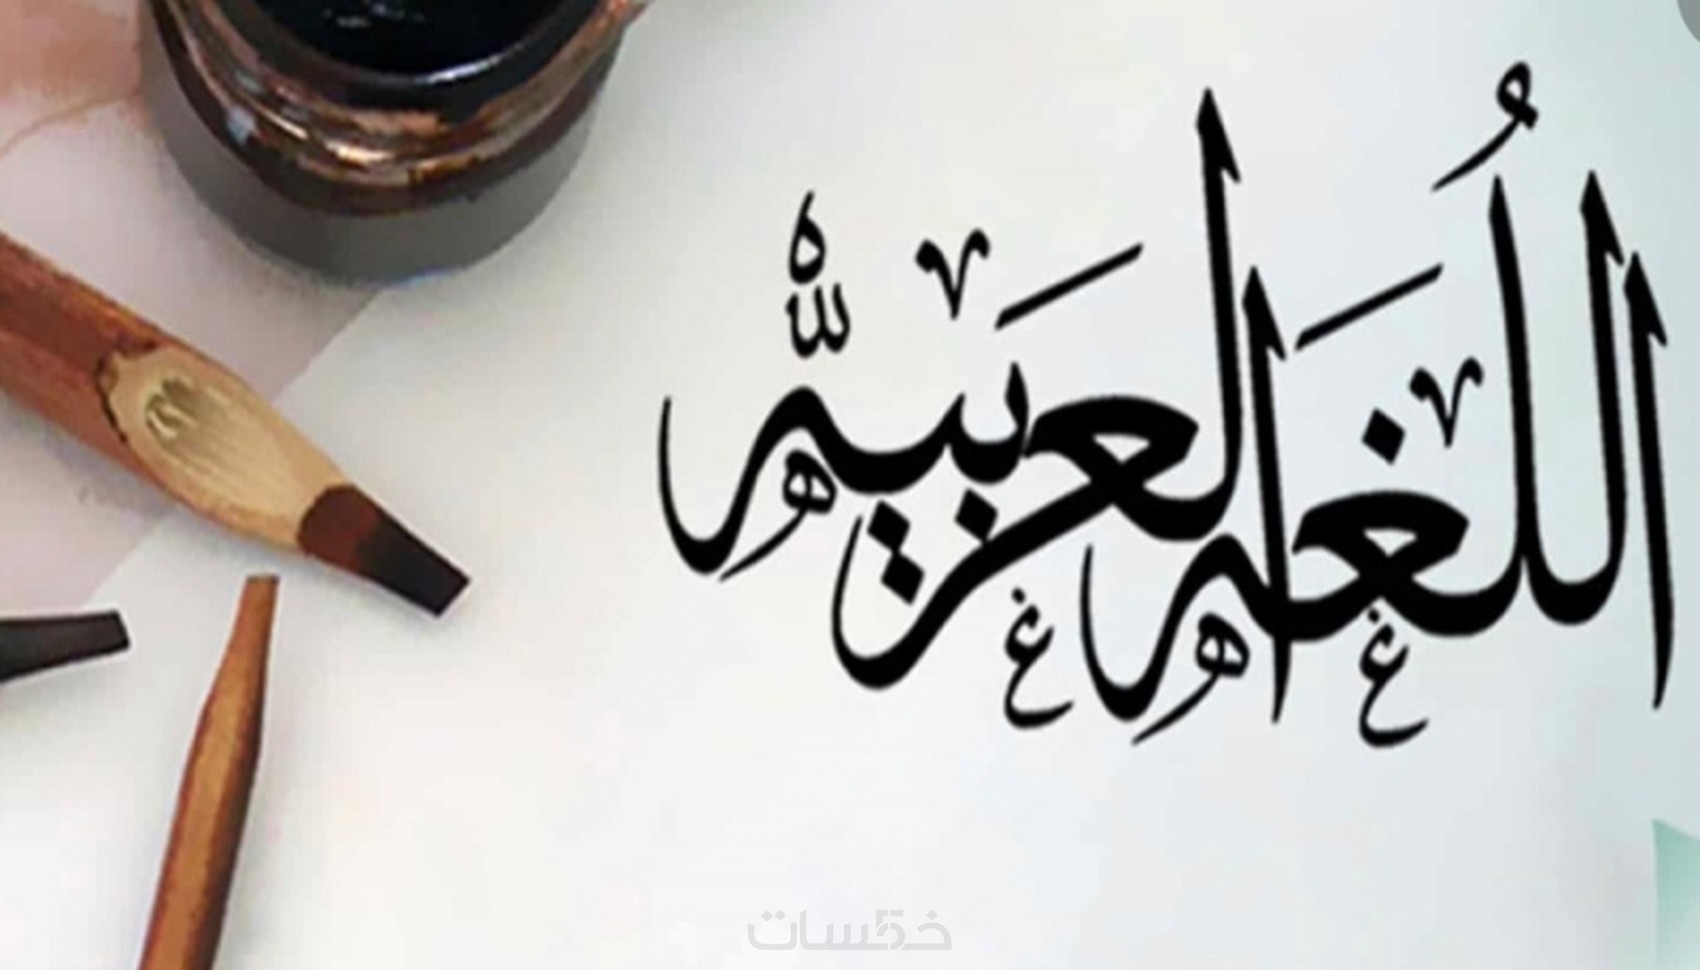 اللُغَه العَربيّه
خمسات